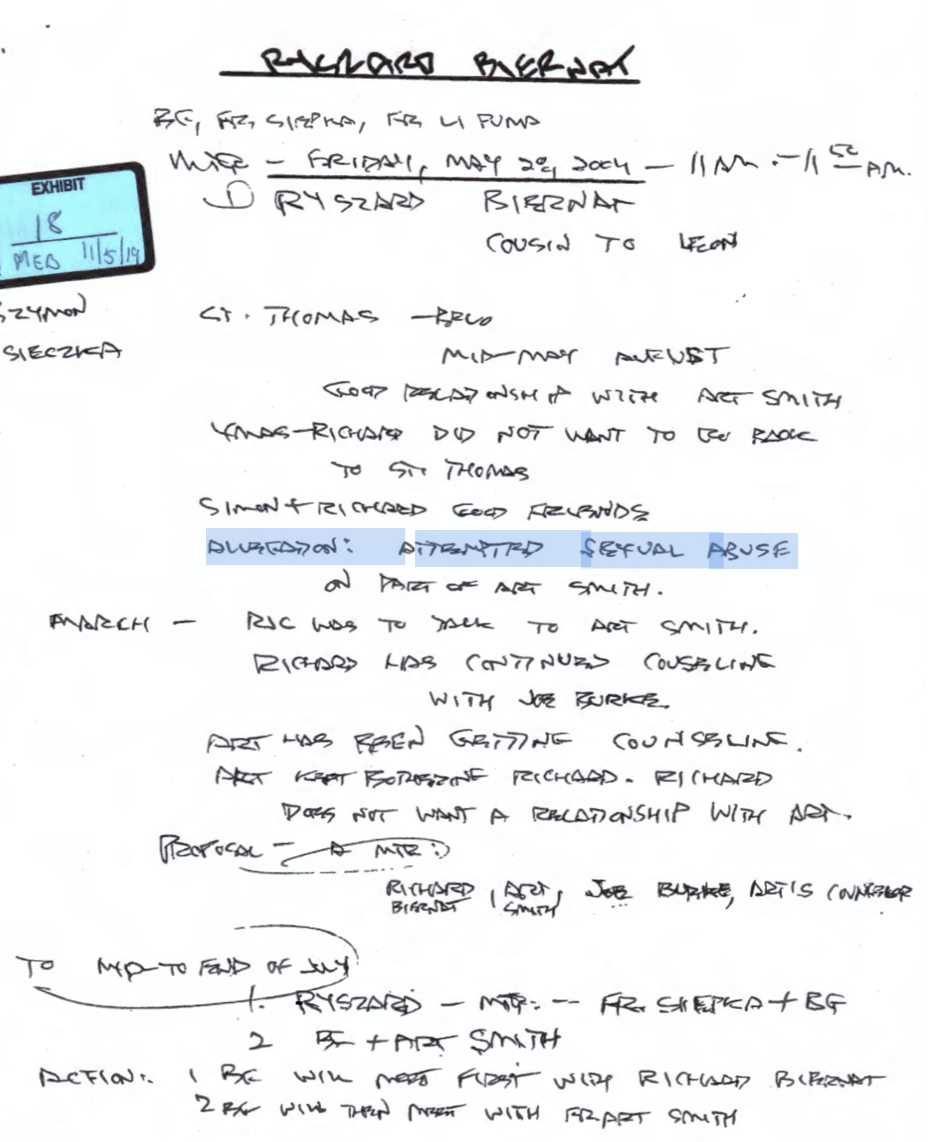 RYSZARD BIERNAT
BG, FR. SIEPKA, FR LI PUMA
MTG - FRIDAY, MAY 28, 2004 - 11 AM. - 11 50 AM.
EXHIBIT
18
MEB 11/5/19
① RYSZARD BIERNAT
COUSIN TO LEON
SZYMON
SIECZKA
ST. THOMAS -
MID-MAY AUGUST
GOOD RELATIONSHIP WITH ART SMITH
XMAS-RICHARD DID NOT WANT TO GO BACK
TO ST. THOMAS
SIMON + RICHARD GOOD FRIENDS
ALLEGATION: ATTEMPTED SEXUAL ABUSE
ON PART OF ART SMITH.
MARCH - RIC WAS TO TALK TO ART SMITH.
RICHARD HAS CONTINUED COUSELING
WITH JOE BURKE.
ART HAS BEEN GETTING COUNSELING.
ART KEPT BOTHERING RICHARD. RICHARD
DOES NOT WANT A RELATIONSHIP WITH ART.
PROPOSAL - A MTG:
RICHARD BIERNAT, ART SMITH, JOE BURKE, ART'S COUNSELOR
TO MID-TO END OF JULY
1. RYSZARD - MTG: -- FR. SIEPKA + BG
2 BG + ART SMITH
ACTION: 1 BG WILL MEET FIRST WITH RICHARD BIERNAT
2 BG WILL THEN MEET WITH FR ART SMITH